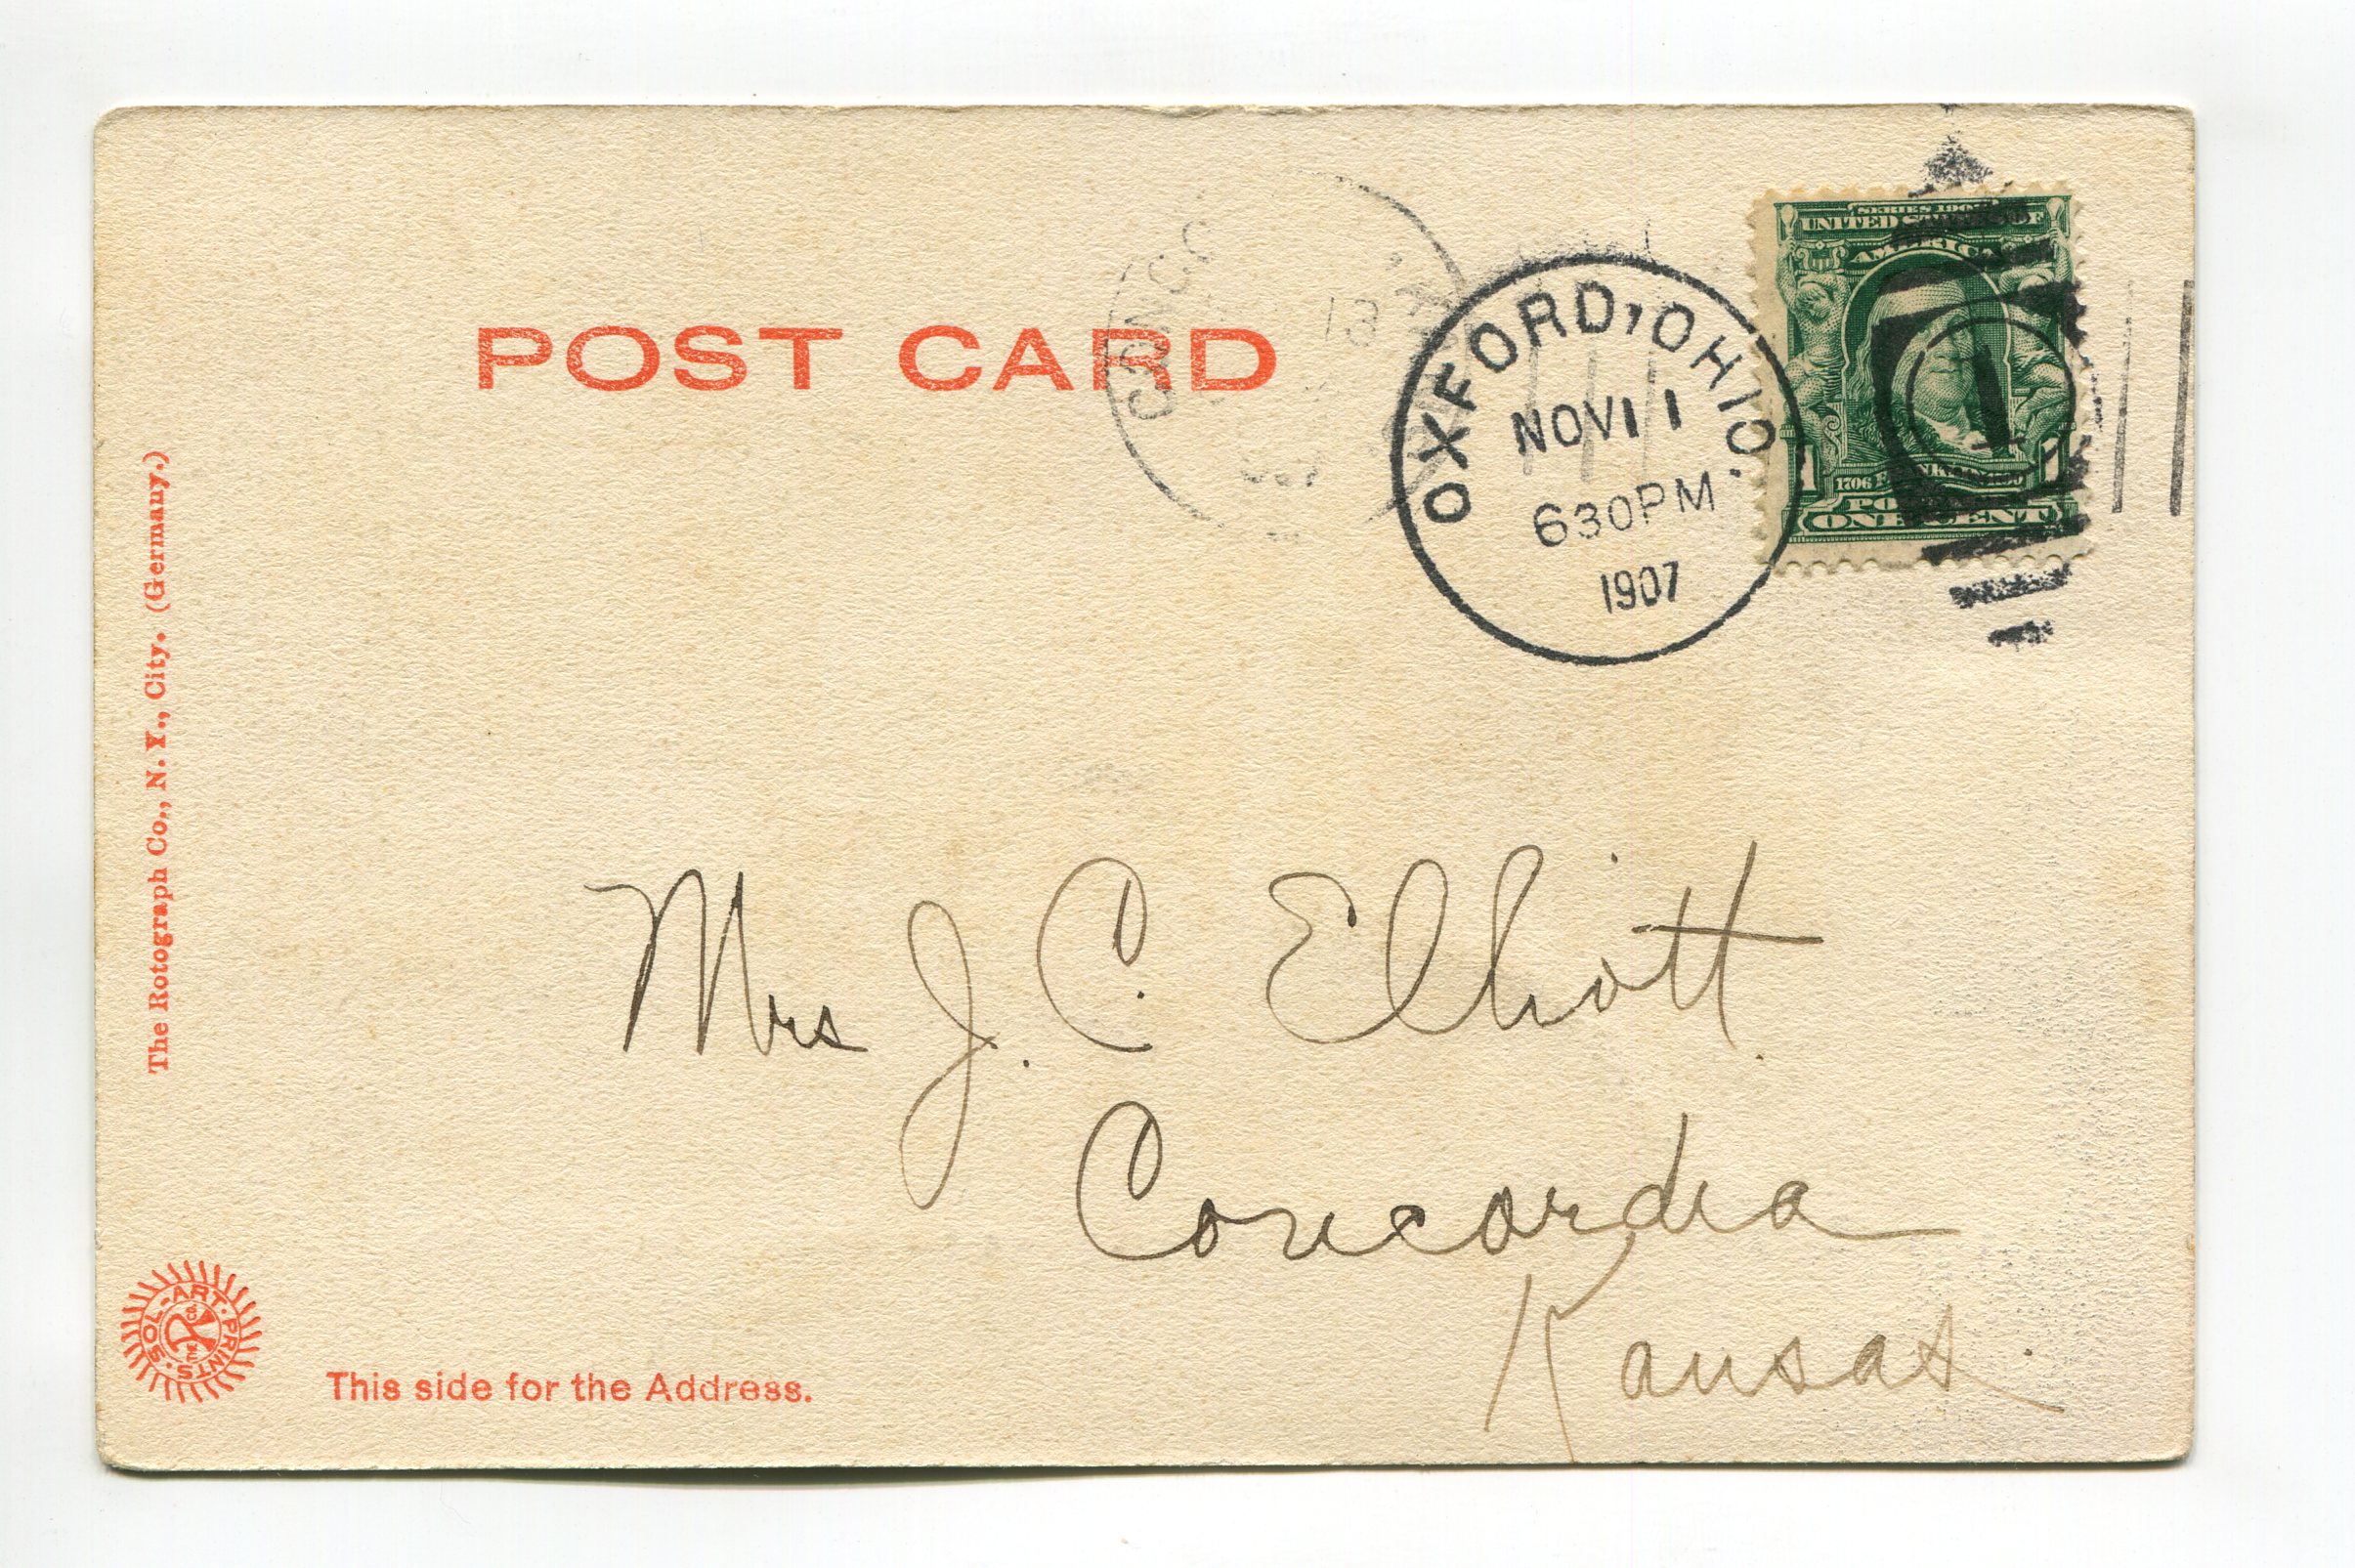 POST CARD
CONCO
13
OXFORD, OHIO.
NOV 11
630PM
1907
1
SERIES 1902
UNITED STATES OF
AMERICA
1706 FRANKLIN 1790
1 1
POSTAGE
ONE CENT
The Rotograph Co., N. Y., City. (Germany.)
Mrs J. C. Elliott.
Concordia
Kansas.
SOL-ART-PRINTS
This side for the Address.